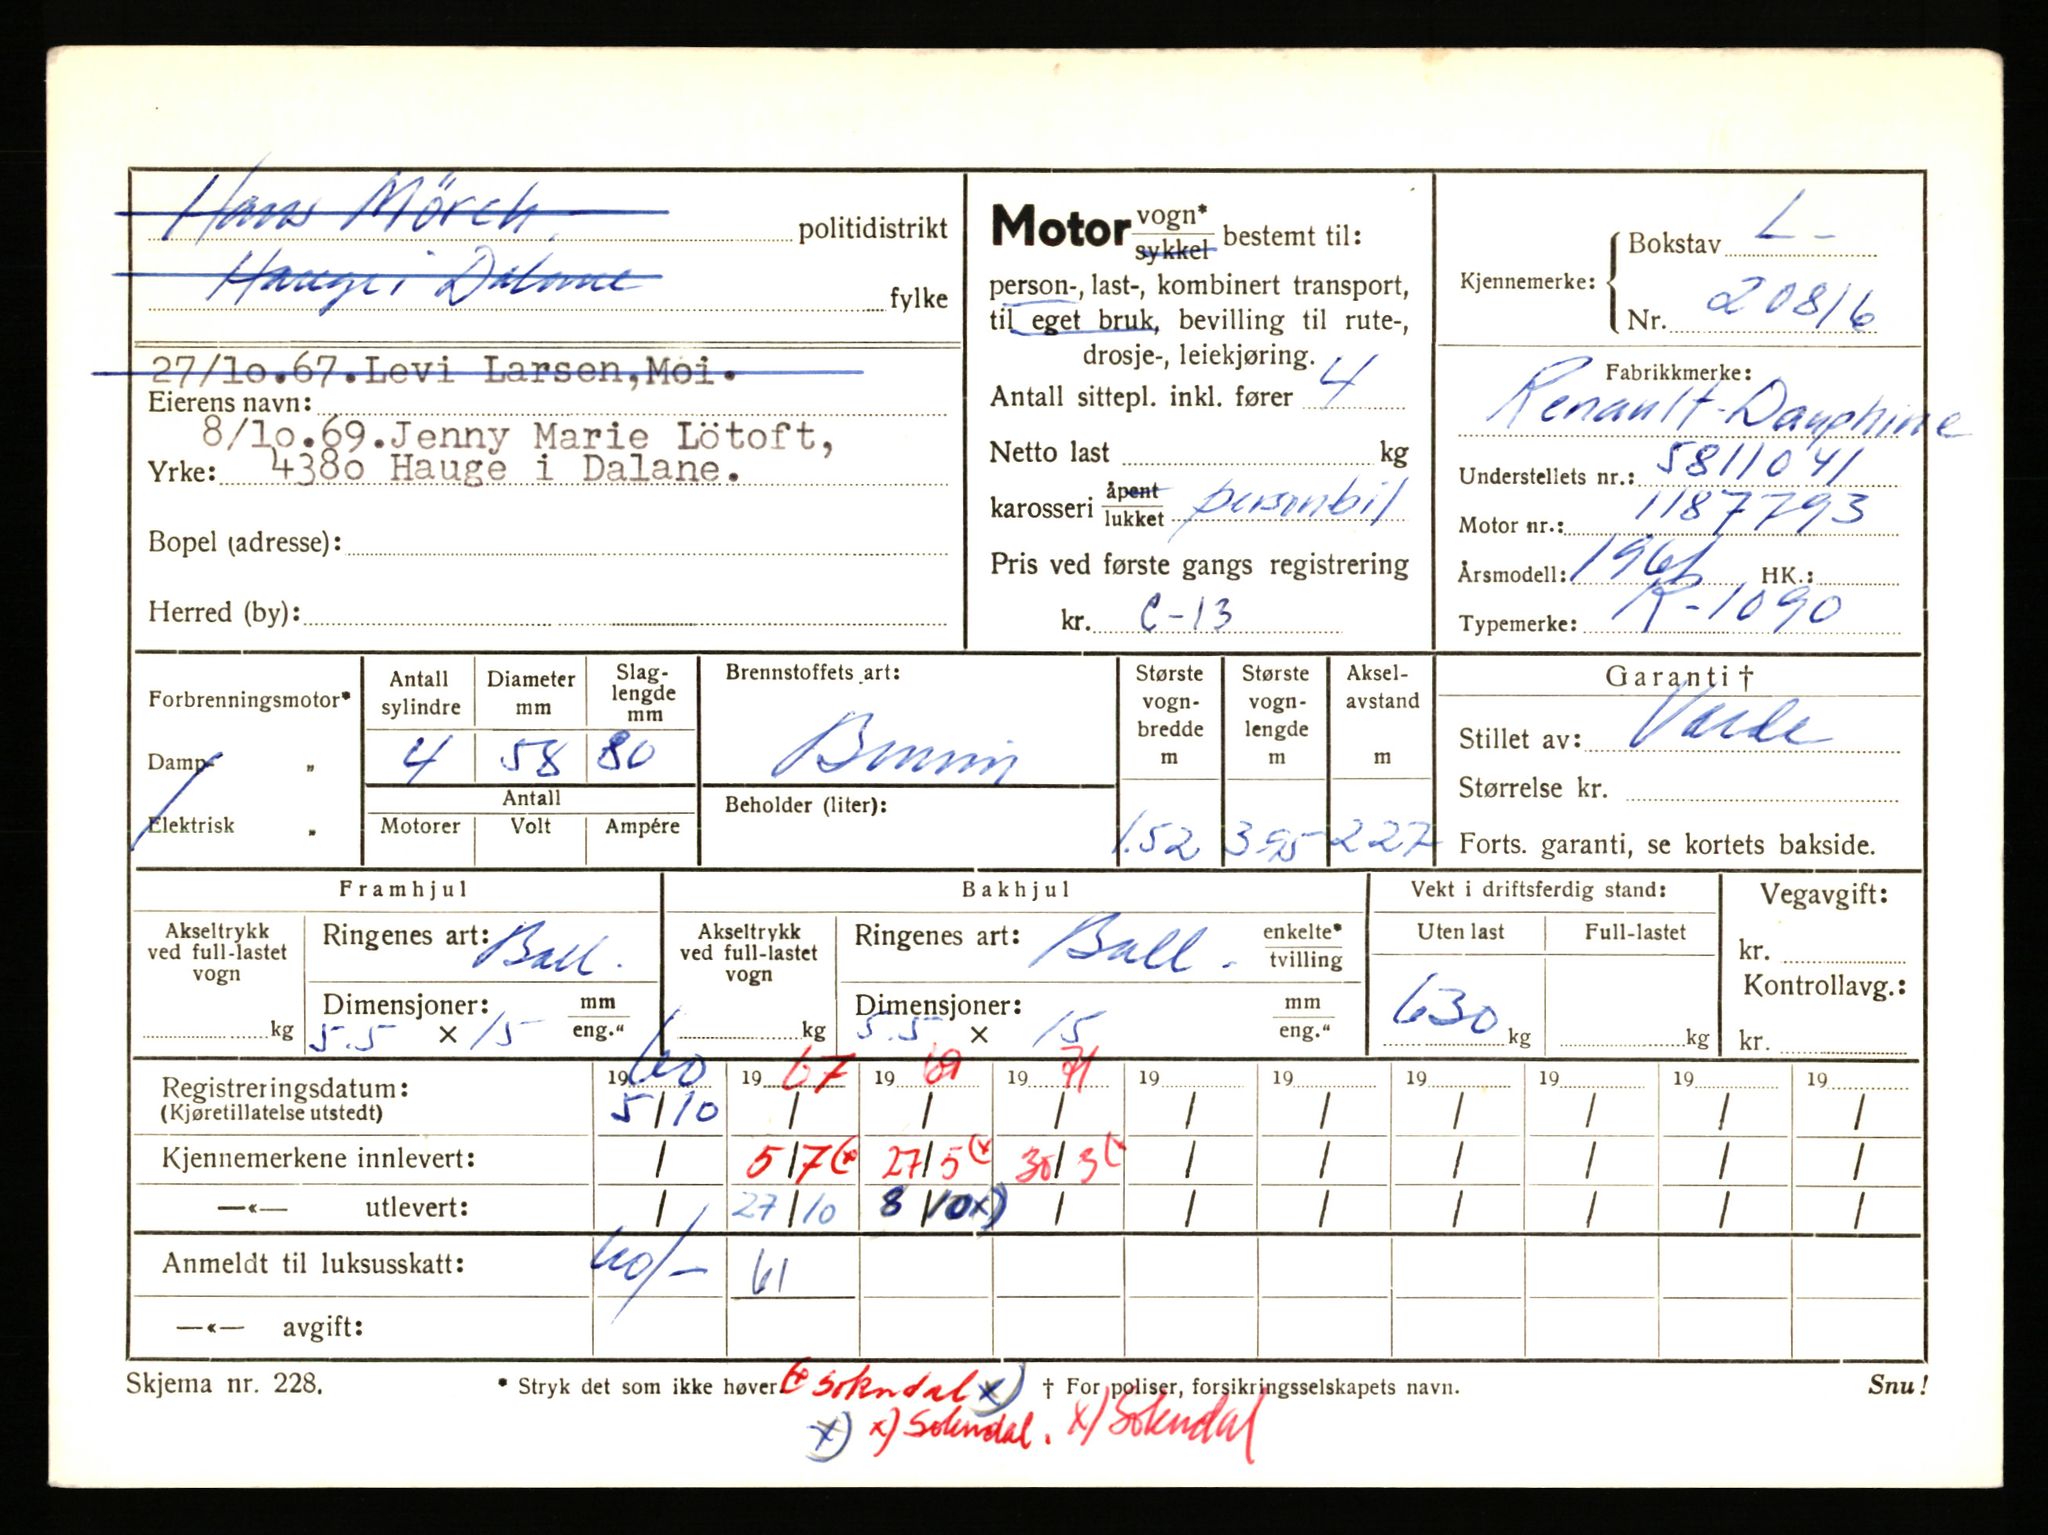 Hans Mörch politidistrikt
Hauge i Dalane fylke
27/10.67.Levi Larsen,Moi.
Eierens navn:
8/10.69.Jenny Marie Lötoft,
Yrke: 4380 Hauge i Dalane.
Bopel (adresse):
Herred (by):
Motor vogn* sykkel bestemt til:
person-, last-, kombinert transport,
til eget bruk, bevilling til rute-,
drosje-, leiekjøring.
Antall sittepl. inkl. fører 4
Netto last kg
karosseri åpent lukket personbil
Pris ved første gangs registrering
kr. C-13
Kjennemerke: Bokstav L-
Nr. 20816
Fabrikkmerke:
Renault-Dauphine
Understellets nr.: 5811041
Motor nr.: 1187793
Årsmodell: HK.:
Typemerke: R-1090
Forbrenningsmotor*
Damp- „
Elektrisk „
Antall sylindre Diameter mm Slag-lengde mm
4 58 80
Antall
Motorer Volt Ampére
Brennstoffets art:
Bensin
Beholder (liter):
Største vogn-bredde m Største vogn-lengde m Aksel-avstand m
1.52 395 227
Garanti †
Stillet av: Varde
Størrelse kr.
Forts. garanti, se kortets bakside.
Framhjul
Akseltrykk ved full-lastet vogn
kg
Ringenes art: Ball.
Dimensjoner: mm eng."
5.5 × 15
Bakhjul
Akseltrykk ved full-lastet vogn
kg
Ringenes art: Ball. enkelte* tvilling
Dimensjoner: mm eng."
5.5 × 15
Vekt i driftsferdig stand:
Uten last Full-lastet
630 kg kg
Vegavgift:
kr.
Kontrollavg.:
kr.
60
Registreringsdatum: 1960 1967 1969 1971 19 19 19 19 19 19
(Kjøretillatelse utstedt) 5/10 / / / / / / / / /
Kjennemerkene innlevert: / 5/7(* 27/5(x 30/3(x / / / / / /
—«— utlevert: / 27/10 8/10x) / / / / / / /
Anmeldt til luksusskatt: 60/- 61
—«— avgift:
Skjema nr. 228. * Stryk det som ikke høver. (* Sokndal x) † For poliser, forsikringsselskapets navn. Snu!
x) x) Sokndal. x) Sokndal